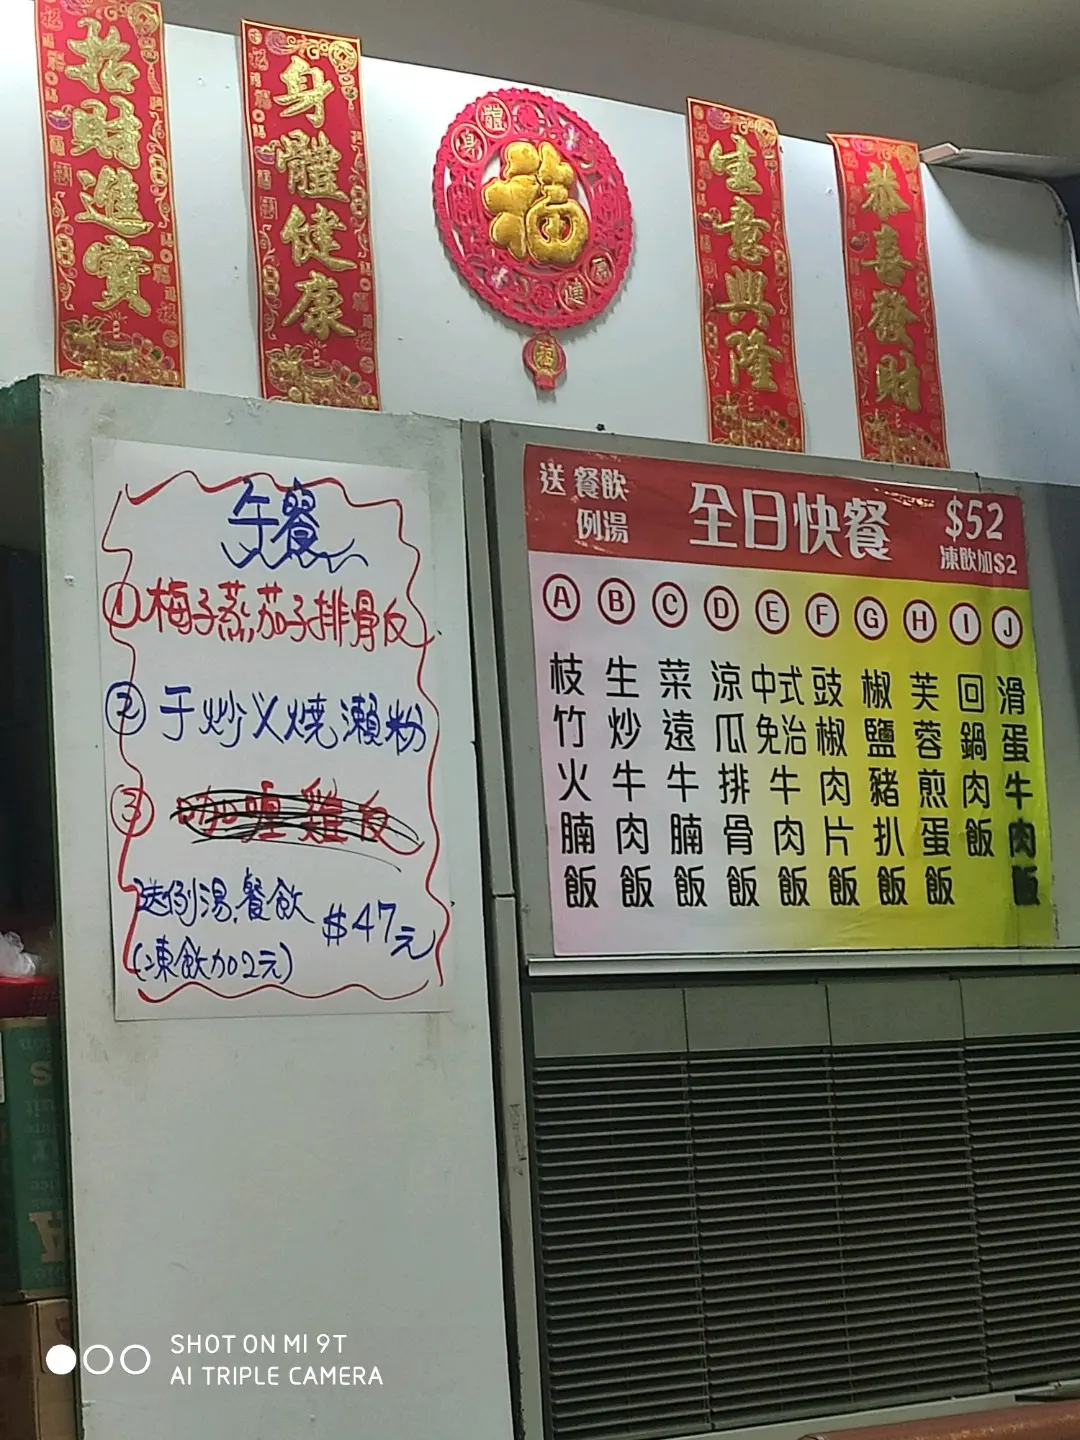 招財進寶
身體健康
福
身體健康
福
生意興隆
恭喜發財
午餐
① 梅子蒸茄子排骨反
② 干炒义燒瀨粉
③ 咖喱雞反
送例湯.餐飲 $47元
(凍飲加2元)
送餐飲
例湯
全日快餐
$52
凍飲加$2
A 枝竹火腩飯
B 生炒牛肉飯
C 菜遠牛腩飯
D 涼瓜排骨飯
E 中式免治牛肉飯
F 豉椒肉片飯
G 椒鹽豬扒飯
H 芙蓉煎蛋飯
I 回鍋肉飯
J 滑蛋牛肉飯
SHOT ON MI 9T
AI TRIPLE CAMERA